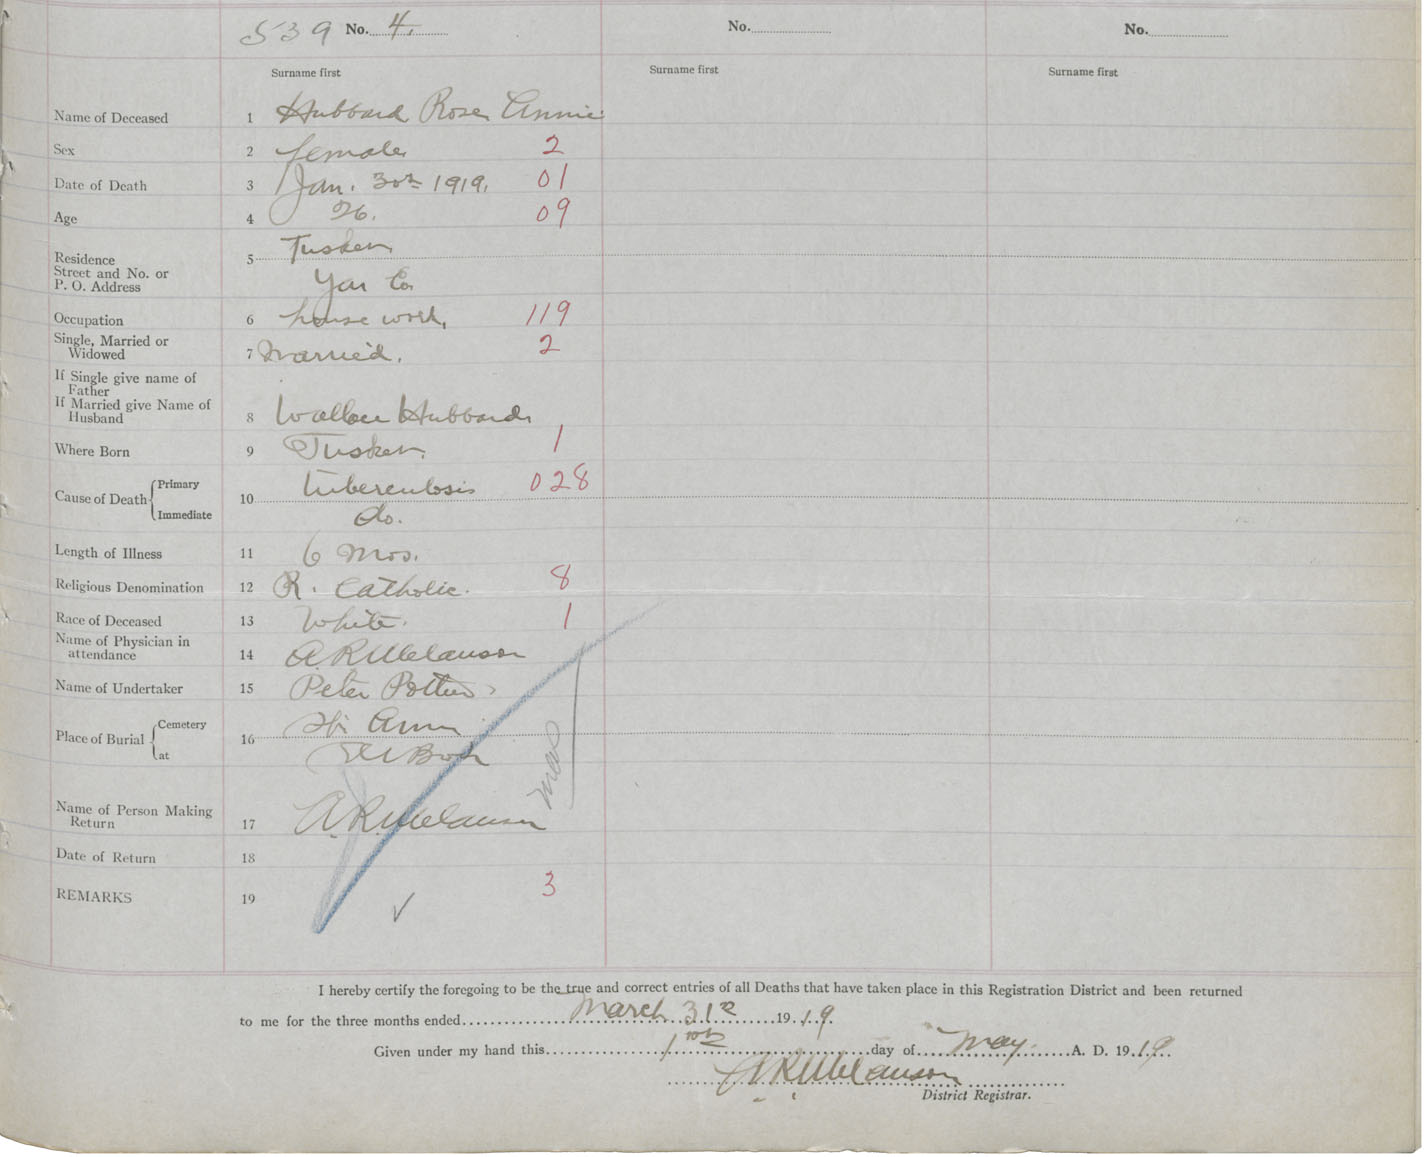 539 No. 4. No. No.
Surname first Surname first Surname first
Name of Deceased 1 Hubbard Rose Annie
Sex 2 female 2
Date of Death 3 Jan. 30th 1919. 01
Age 4 26. 09
Residence 5 Tusket
Street and No. or
P. O. Address Yar Co
Occupation 6 house work, 119
Single, Married or
Widowed 7 Married. 2
If Single give name of
Father
If Married give Name of
Husband 8 Wallace Hubbard
Where Born 9 Tusket. 1
Cause of Death Primary 10 tuberculosis 028
Immediate do.
Length of Illness 11 6 Mos.
Religious Denomination 12 R. Catholic. 8
Race of Deceased 13 White. 1
Name of Physician in
attendance 14 A. R. Melanson
Name of Undertaker 15 Peter
Place of Burial Cemetery 16 Ann
at
Name of Person Making
Return 17 A. R. Melanson
Date of Return 18
REMARKS 19 3
I hereby certify the foregoing to be the true and correct entries of all Deaths that have taken place in this Registration District and been returned
to me for the three months ended March 31st 1919.
Given under my hand this day of May A. D. 1919
A. R. Melanson
District Registrar.